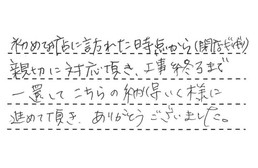 初めて店に訪れた時点から(閉店ギリギリ)
親切に対応頂き、工事終るまで
一還して こちらの納得いく様に
進めて頂き、ありがとうございました。